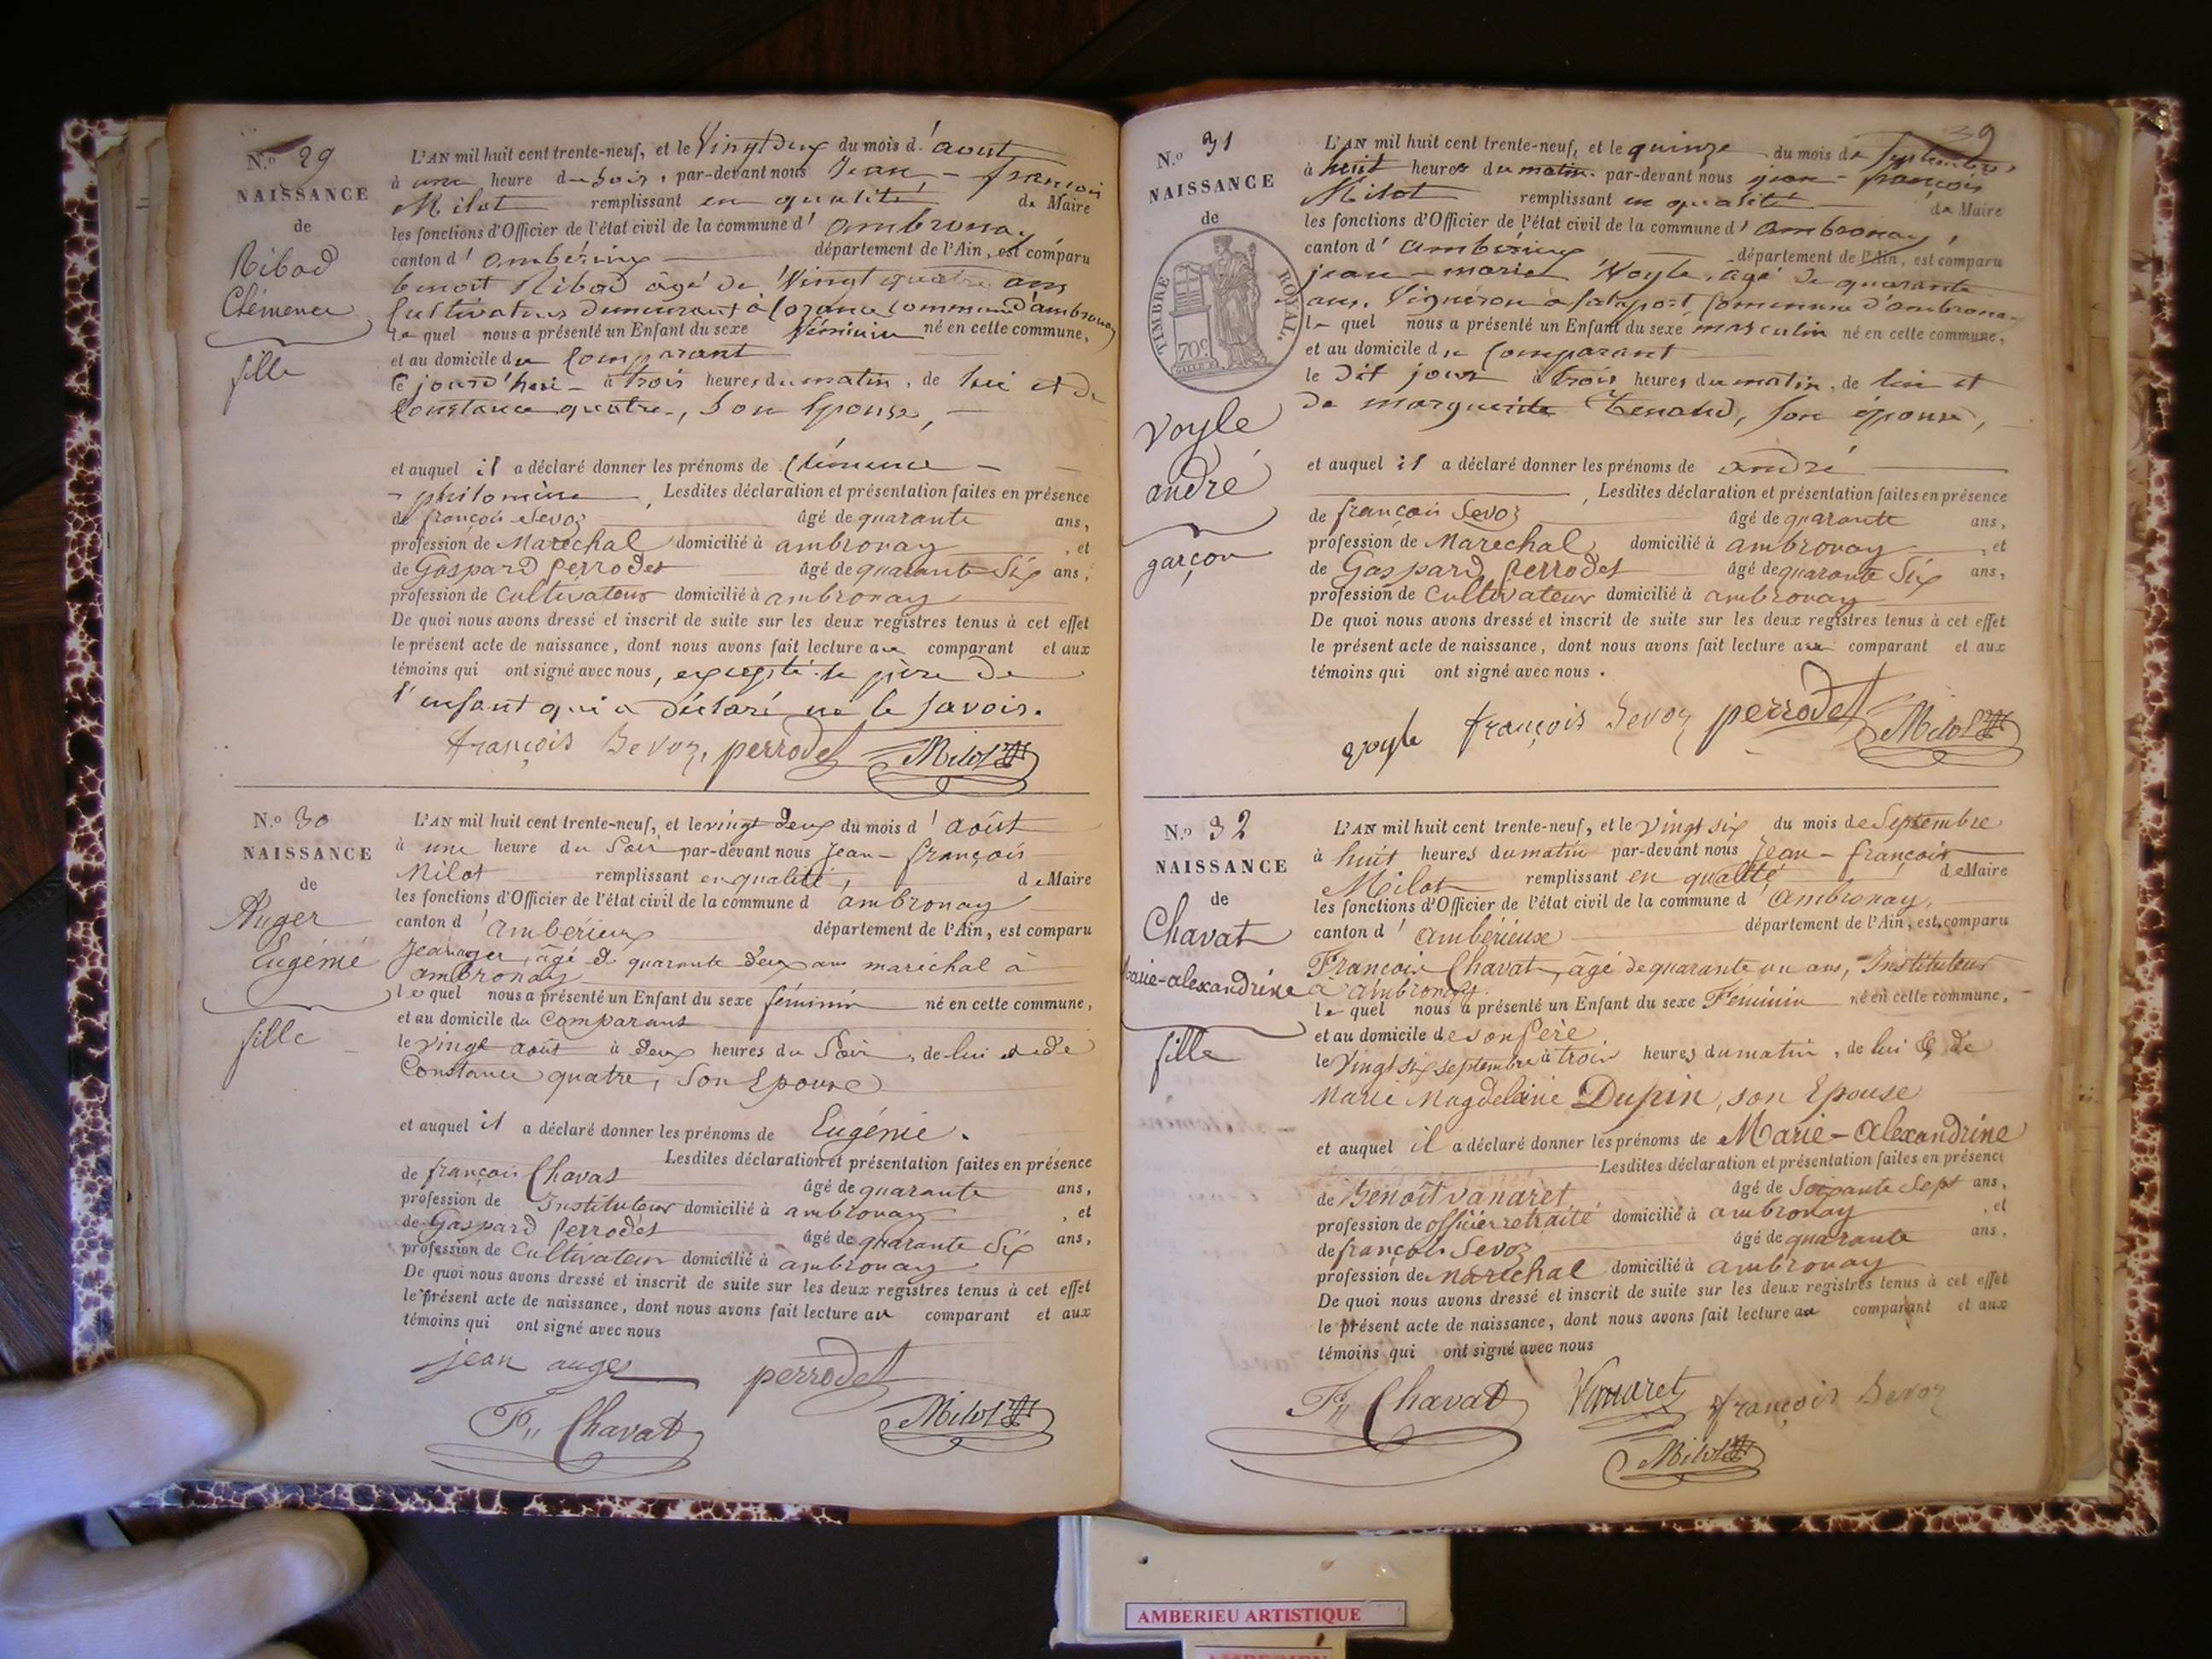 N.o 29
NAISSANCE
de
Ribod
Clémence
fille
L'AN mil huit cent trente-neuf, et le Vingt deux du mois d' aout
à une heure du soir, par-devant nous Jean - françois
Milot remplissant en qualité de Maire
les fonctions d'Officier de l'état civil de la commune d' ambronay
canton d' ambérieux département de l'Ain, est comparu
benoit Ribod âgé de Vingt quatre ans
Cultivateur demeurant à Commune d'ambronay
le quel nous a présenté un Enfant du sexe féminin né en cette commune,
et au domicile du Comparant
ce jourd'hui à trois heures du matin, de lui et de
Constance quatre, son Epouse,
et auquel il a déclaré donner les prénoms de Clémence -
- philomène, Lesdites déclaration et présentation faites en présence
de françois Sevoz âgé de quarante ans,
profession de Maréchal domicilié à ambronay, et
de Gaspard perrodet âgé de quarante Six ans,
profession de Cultivateur domicilié à ambronay
De quoi nous avons dressé et inscrit de suite sur les deux registres tenus à cet effet
le présent acte de naissance, dont nous avons fait lecture au comparant et aux
témoins qui ont signé avec nous, excepté le père de
l'enfant qui a déclaré ne le savoir.
françois Sevoz, perrodet Milot
N.o 30
NAISSANCE
de
Auger
Eugénie
fille
L'AN mil huit cent trente-neuf, et le vingt deux du mois d' août
à une heure du Soir par-devant nous Jean - françois
Milot remplissant en qualité, de Maire
les fonctions d'Officier de l'état civil de la commune d ambronay
canton d' ambérieux département de l'Ain, est comparu
Jean auger, âgé de quarante deux ans maréchal à
ambronay
lequel nous a présenté un Enfant du sexe féminin né en cette commune,
et au domicile du Comparant
le vingt août à deux heures du Soir, de lui et de
Constance quatre, Son Epouse
et auquel il a déclaré donner les prénoms de Eugénie.
Lesdites déclaration et présentation faites en présence
de françois Chavat âgé de quarante ans,
profession de Instituteur domicilié à ambronay, et
de Gaspard perrodet âgé de quarante Six ans,
profession de Cultivateur domicilié à ambronay
De quoi nous avons dressé et inscrit de suite sur les deux registres tenus à cet effet
le présent acte de naissance, dont nous avons fait lecture au comparant et aux
témoins qui ont signé avec nous
jean auger perrodet
F. Chavat Milot
39
N.o 31
NAISSANCE
de
TIMBRE ROYAL.
70c
Voyle
andré
garçon
L'AN mil huit cent trente-neuf, et le quinze du mois de Septembre,
à huit heures du matin par-devant nous jean - françois
Milot remplissant en qualité de Maire
les fonctions d'Officier de l'état civil de la commune d' ambronay,
canton d' ambérieux département de l'Ain, est comparu
jean - marie Voyle, âgé de quarante
ans, Vigneron à Commune d'ambronay
le quel nous a présenté un Enfant du sexe masculin né en cette commune,
et au domicile du Comparant
le Dit jour à trois heures du matin, de lui et
de marguerite Tenand, son épouse,
et auquel il a déclaré donner les prénoms de andré
, Lesdites déclaration et présentation faites en présence
de françois Sevoz âgé de quarante ans,
profession de Marechal domicilié à ambronay, et
de Gaspard perrodet âgé de quarante Six ans,
profession de Cultivateur domicilié à ambronay
De quoi nous avons dressé et inscrit de suite sur les deux registres tenus à cet effet
le présent acte de naissance, dont nous avons fait lecture au comparant et aux
témoins qui ont signé avec nous.
voyle françois Sevoz perrodet Milot
N.o 32
NAISSANCE
de
Chavat
Marie-alexandrine
fille
L'AN mil huit cent trente-neuf, et le Vingt six du mois de Septembre
à huit heures du matin par-devant nous Jean - françois
Milot remplissant en qualité de Maire
les fonctions d'Officier de l'état civil de la commune d' ambronay,
canton d' ambérieux département de l'Ain, est comparu
François Chavat, âgé de quarante un ans, Instituteur
à ambronay.
le quel nous a présenté un Enfant du sexe Féminin né en cette commune,
et au domicile de son Père
le Vingt six septembre à trois heures du matin, de lui & de
Marie Magdeleine Dupin, son Epouse
et auquel il a déclaré donner les prénoms de Marie - Alexandrine
Lesdites déclaration et présentation faites en présence
de Benoît vanaret âgé de Soixante Sept ans,
profession de officier retraité domicilié à ambronay, et
de françois Sevoz âgé de quarante ans,
profession de maréchal domicilié à ambronay
De quoi nous avons dressé et inscrit de suite sur les deux registres tenus à cet effet
le présent acte de naissance, dont nous avons fait lecture au comparant et aux
témoins qui ont signé avec nous
F. Chavat Vanaret françois Sevoz
Milot
AMBERIEU ARTISTIQUE